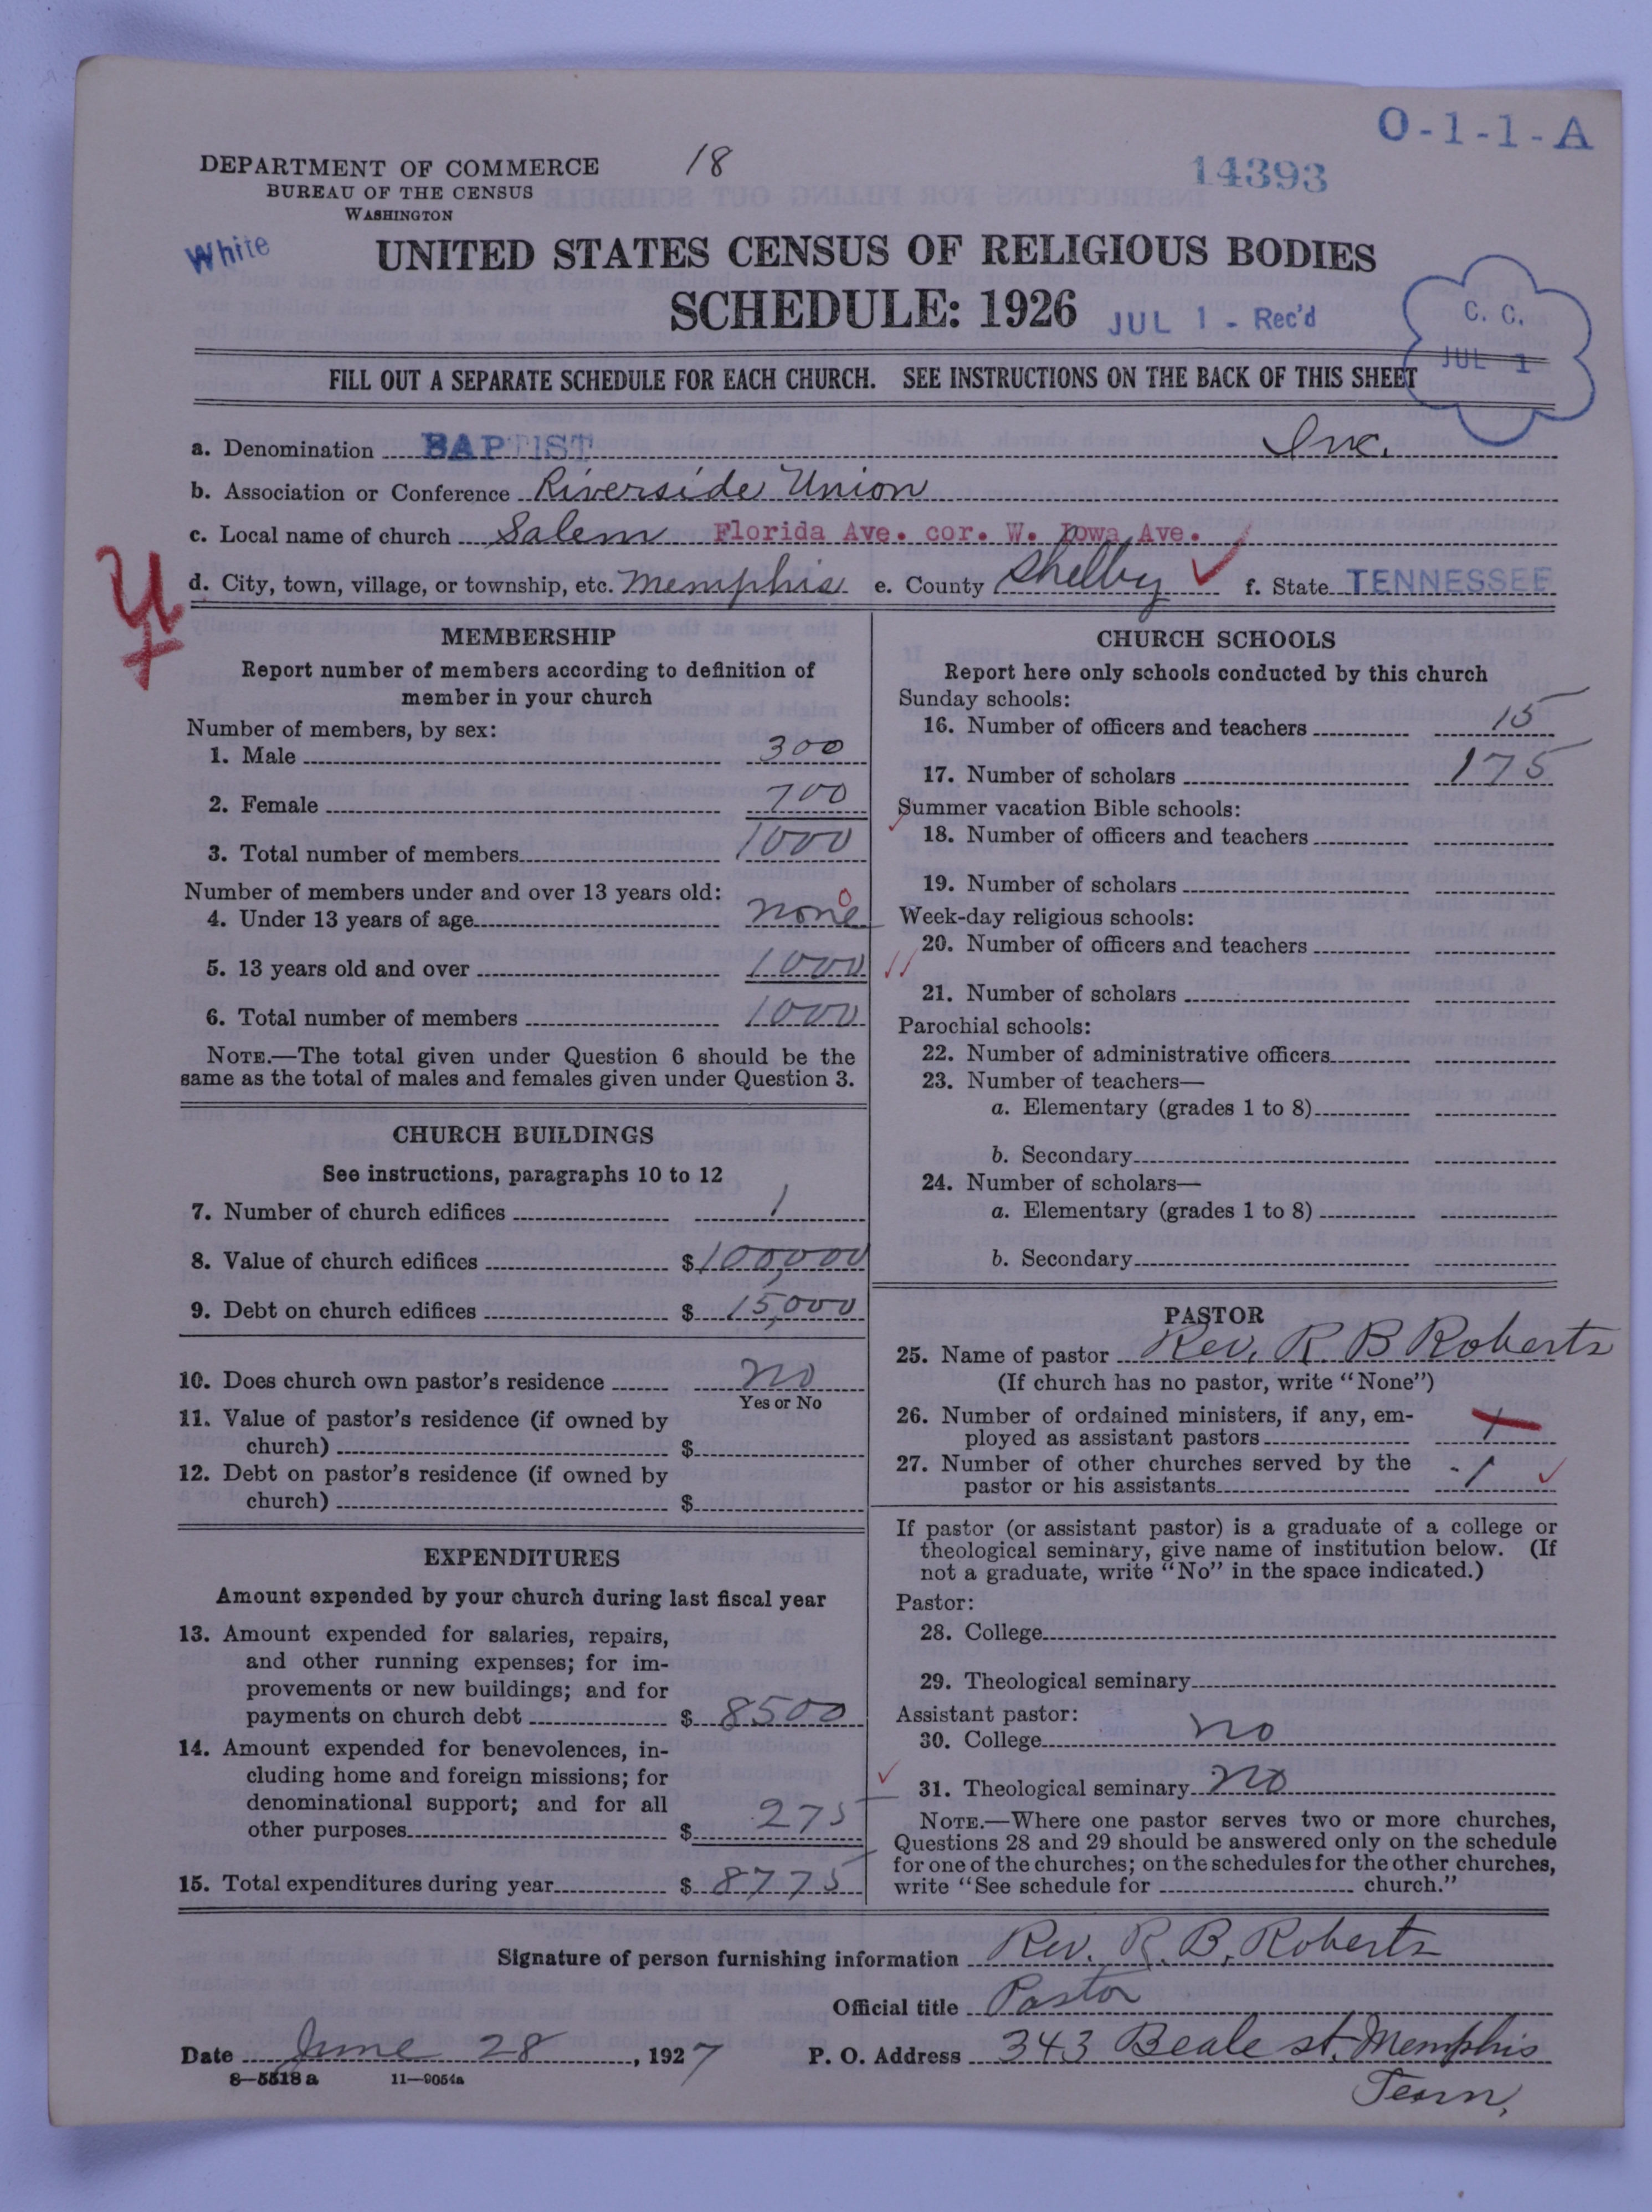 O-1-1-A
DEPARTMENT OF COMMERCE 18 14393
BUREAU OF THE CENSUS
WASHINGTON
White
UNITED STATES CENSUS OF RELIGIOUS BODIES
SCHEDULE: 1926 JUL 1 - Rec'd
C. C.
JUL 1
FILL OUT A SEPARATE SCHEDULE FOR EACH CHURCH. SEE INSTRUCTIONS ON THE BACK OF THIS SHEET
a. Denomination BAPTIST Inc.
b. Association or Conference Riverside Union
c. Local name of church Salem Florida Ave. cor. W. Iowa Ave.
d. City, town, village, or township, etc. Memphis e. County Shelby f. State TENNESSEE
MEMBERSHIP
Report number of members according to definition of
member in your church
Number of members, by sex:
1. Male 300
2. Female 700
3. Total number of members 1000
Number of members under and over 13 years old:
4. Under 13 years of age none 0
5. 13 years old and over 1000
6. Total number of members 1000
NOTE.—The total given under Question 6 should be the
same as the total of males and females given under Question 3.
CHURCH BUILDINGS
See instructions, paragraphs 10 to 12
7. Number of church edifices 1
8. Value of church edifices $100,000
9. Debt on church edifices $15,000
10. Does church own pastor's residence no
Yes or No
11. Value of pastor's residence (if owned by
church) $
12. Debt on pastor's residence (if owned by
church) $
EXPENDITURES
Amount expended by your church during last fiscal year
13. Amount expended for salaries, repairs,
and other running expenses; for im-
provements or new buildings; and for
payments on church debt $ 8500
14. Amount expended for benevolences, in-
cluding home and foreign missions; for
denominational support; and for all
other purposes $ 275
15. Total expenditures during year $ 8775
CHURCH SCHOOLS
Report here only schools conducted by this church
Sunday schools:
16. Number of officers and teachers 15
17. Number of scholars 175
Summer vacation Bible schools:
18. Number of officers and teachers
19. Number of scholars
Week-day religious schools:
20. Number of officers and teachers
21. Number of scholars
Parochial schools:
22. Number of administrative officers
23. Number of teachers—
a. Elementary (grades 1 to 8)
b. Secondary
24. Number of scholars—
a. Elementary (grades 1 to 8)
b. Secondary
PASTOR
25. Name of pastor Rev. R. B Roberts
(If church has no pastor, write "None")
26. Number of ordained ministers, if any, em-
ployed as assistant pastors 1
27. Number of other churches served by the
pastor or his assistants 1
If pastor (or assistant pastor) is a graduate of a college or
theological seminary, give name of institution below. (If
not a graduate, write "No" in the space indicated.)
Pastor:
28. College
29. Theological seminary
Assistant pastor:
30. College no
31. Theological seminary no
NOTE.—Where one pastor serves two or more churches,
Questions 28 and 29 should be answered only on the schedule
for one of the churches; on the schedules for the other churches,
write "See schedule for church."
Signature of person furnishing information Rev. R. B. Roberts
Official title Pastor
Date June 28, 1927 P. O. Address 343 Beale st. Memphis
8—5518a 11—9054a Tenn.